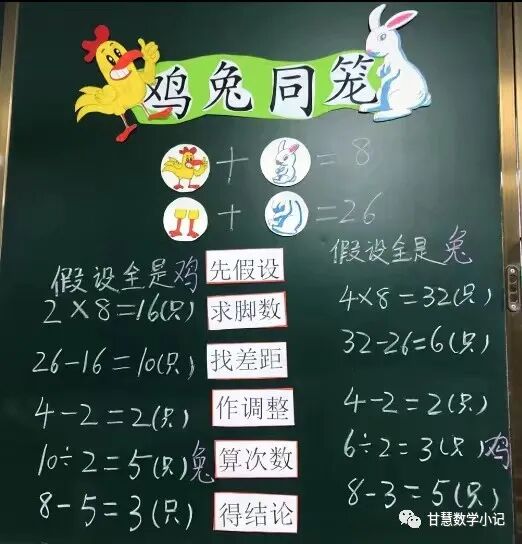 鸡兔同笼
+ = 8
+ = 26
假设全是鸡 先假设 假设全是兔
2×8=16(只) 求脚数 4×8=32(只)
26-16=10(只) 找差距 32-26=6(只)
4-2=2(只) 作调整 4-2=2(只)
10÷2=5(只)兔 算次数 6÷2=3(只)鸡
8-5=3(只) 得结论 8-3=5(只)
甘慧数学小记